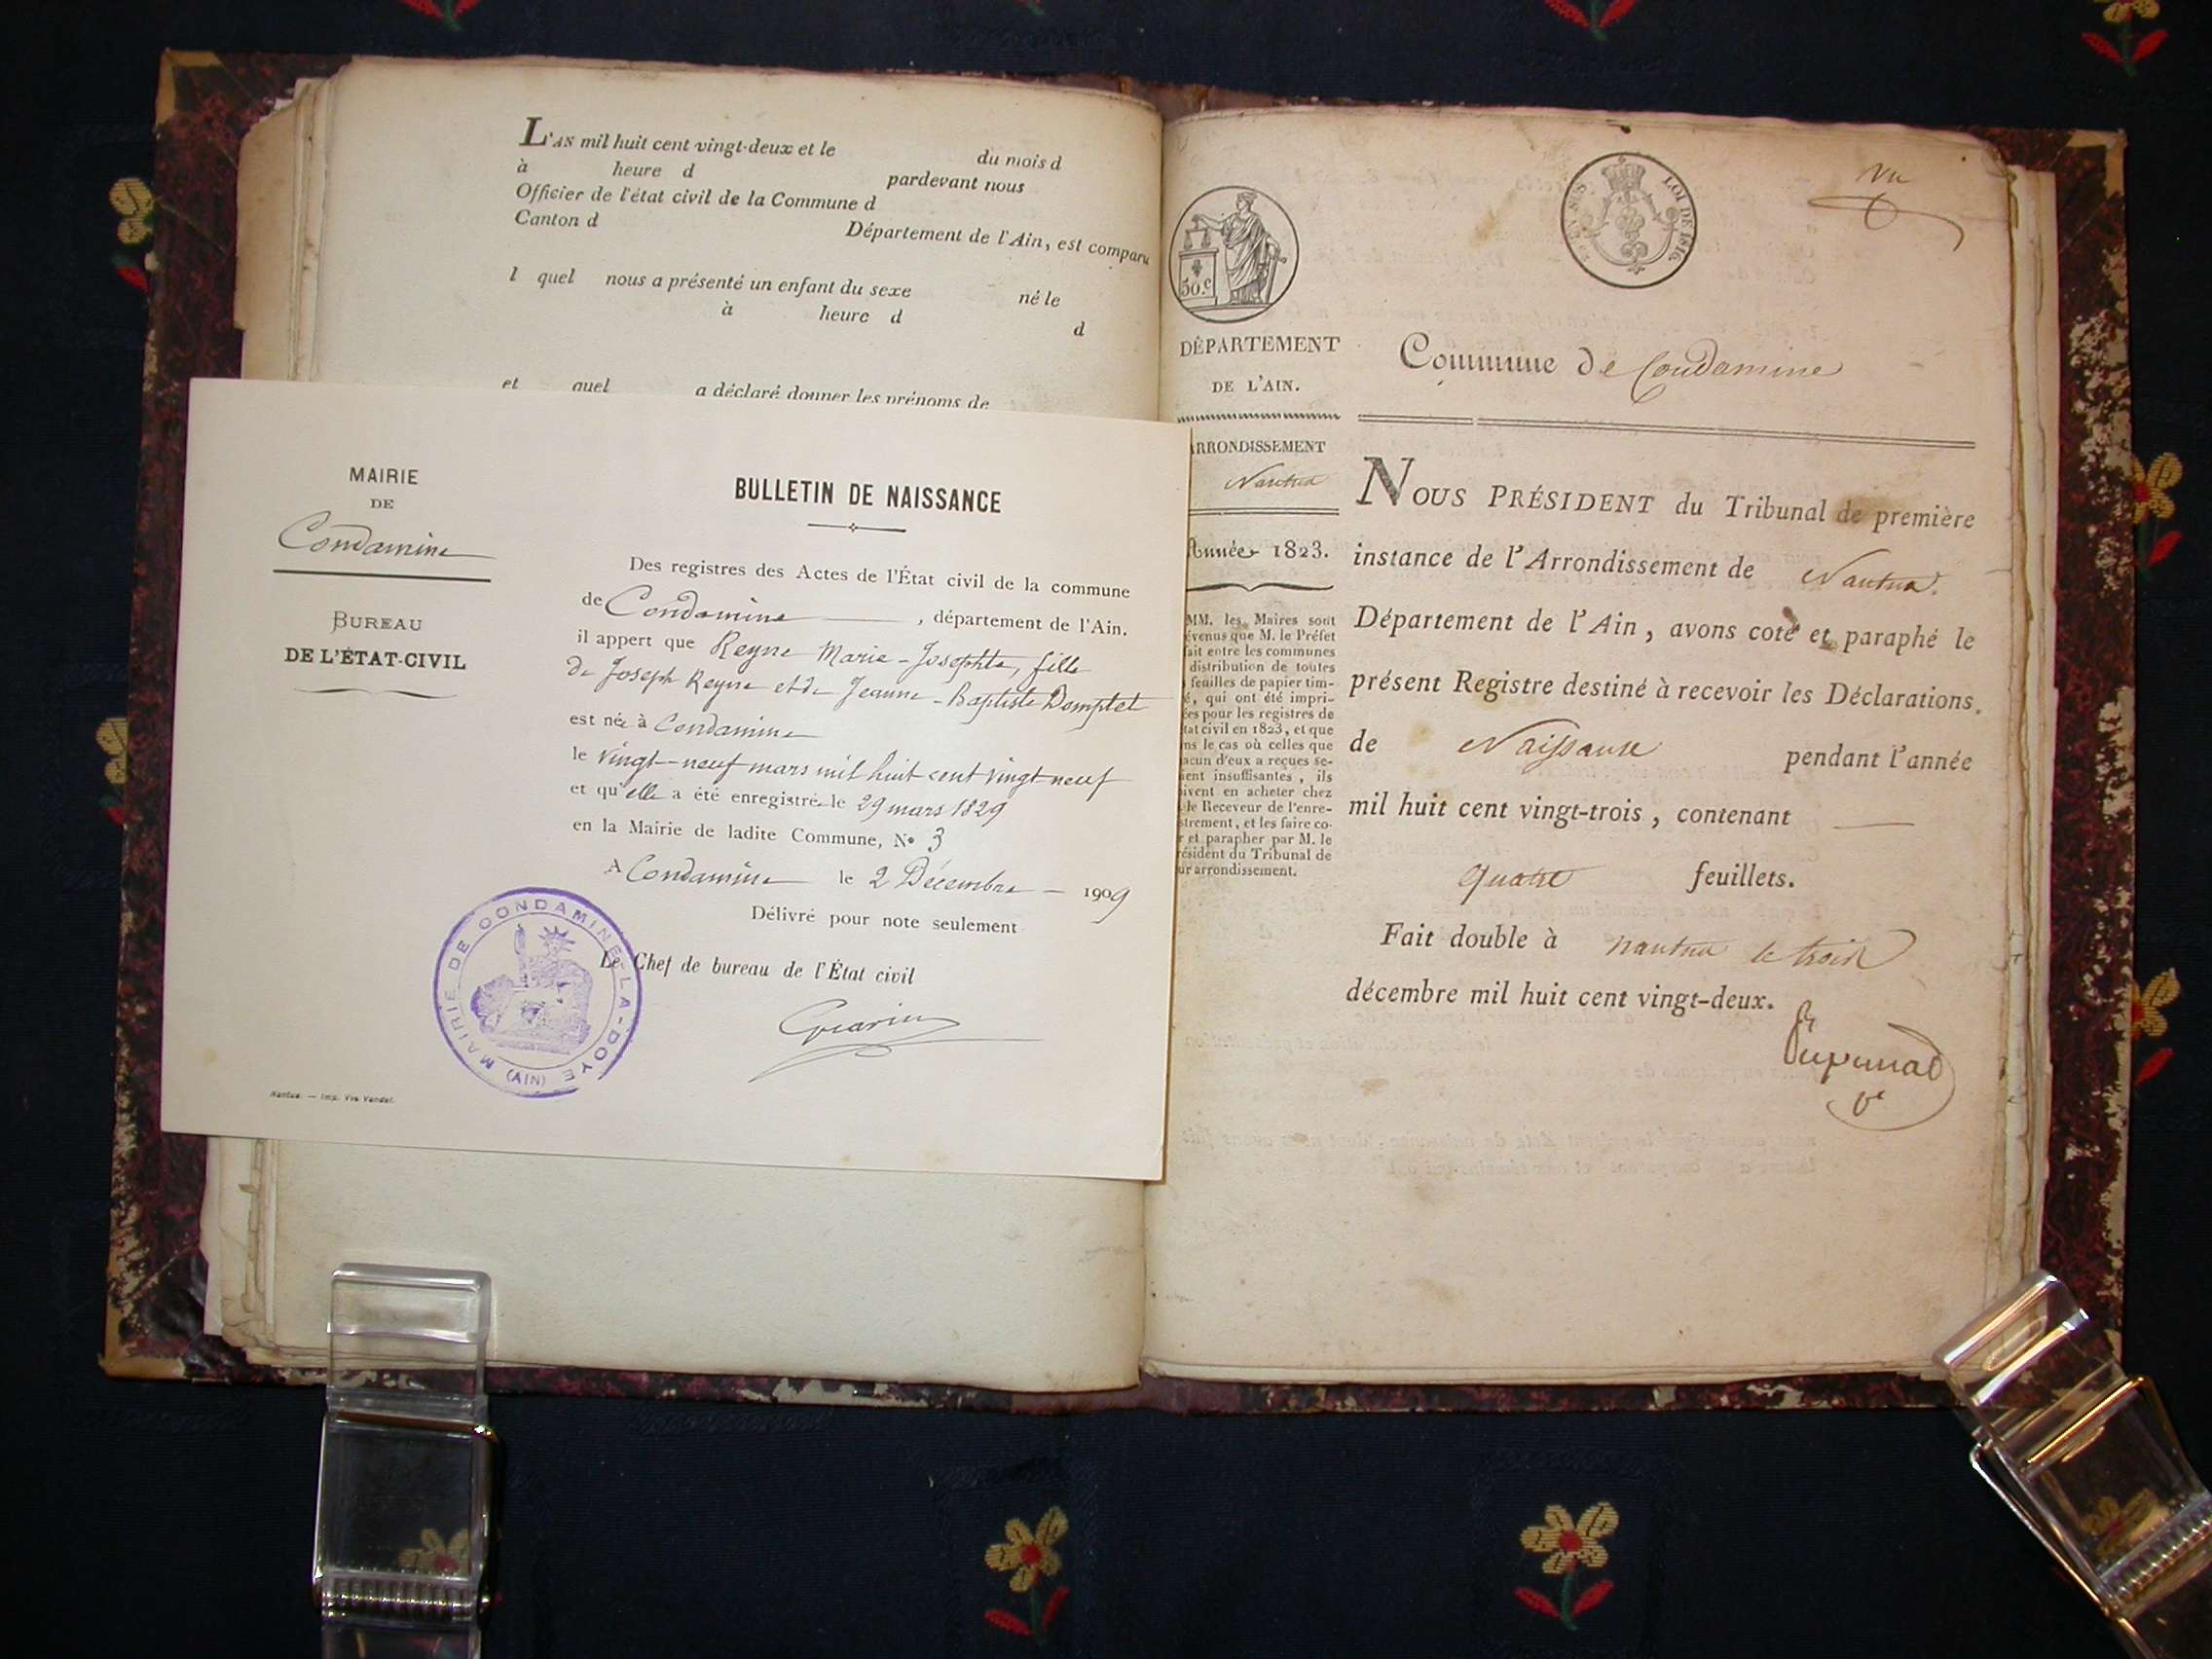 L'AN mil huit cent vingt-deux et le du mois d
à heure d pardevant nous
Officier de l'état civil de la Commune d
Canton d Département de l'Ain, est comparu
l quel nous a présenté un enfant du sexe né le
à heure d d
et quel a déclaré donner les prénoms de
MAIRIE
DE
Condamine
BUREAU
DE L'ÉTAT-CIVIL
BULLETIN DE NAISSANCE
Des registres des Actes de l'État civil de la commune
de Condamine , département de l'Ain.
il appert que Reyne Marie-Josephte, fille
de Joseph Reyne et de Jeanne-Baptiste Domptet
est née à Condamine
le vingt-neuf mars mil huit cent vingt neuf
et qu'elle a été enregistrée le 29 mars 1829
en la Mairie de ladite Commune, No 3
A Condamine le 2 Décembre 1909
Délivré pour note seulement
Le Chef de bureau de l'État civil
Guarin
MAIRIE DE CONDAMINE-LA-DOYE (AIN)
Nantua. — Imp. Vve Vandel.
50.c
LOI DE 1816.
Vu
DÉPARTEMENT
DE L'AIN.
ARRONDISSEMENT
Nantua
Année 1823.
MM. les Maires sont
évenus que M. le Préfet
fait entre les communes
distribution de toutes
feuilles de papier tim-
é, qui ont été impri-
ées pour les registres de
tat civil en 1823, et que
ns le cas où celles que
acun d'eux a reçues se-
ient insuffisantes, ils
oivent en acheter chez
le Receveur de l'enre-
strement, et les faire co-
r et parapher par M. le
résident du Tribunal de
ur arrondissement.
Commune de Condamine
NOUS PRÉSIDENT du Tribunal de première
instance de l'Arrondissement de Nantua.
Département de l'Ain, avons coté et paraphé le
présent Registre destiné à recevoir les Déclarations.
de Naissance pendant l'année
mil huit cent vingt-trois, contenant
quatre feuillets.
Fait double à nantua le trois
décembre mil huit cent vingt-deux.